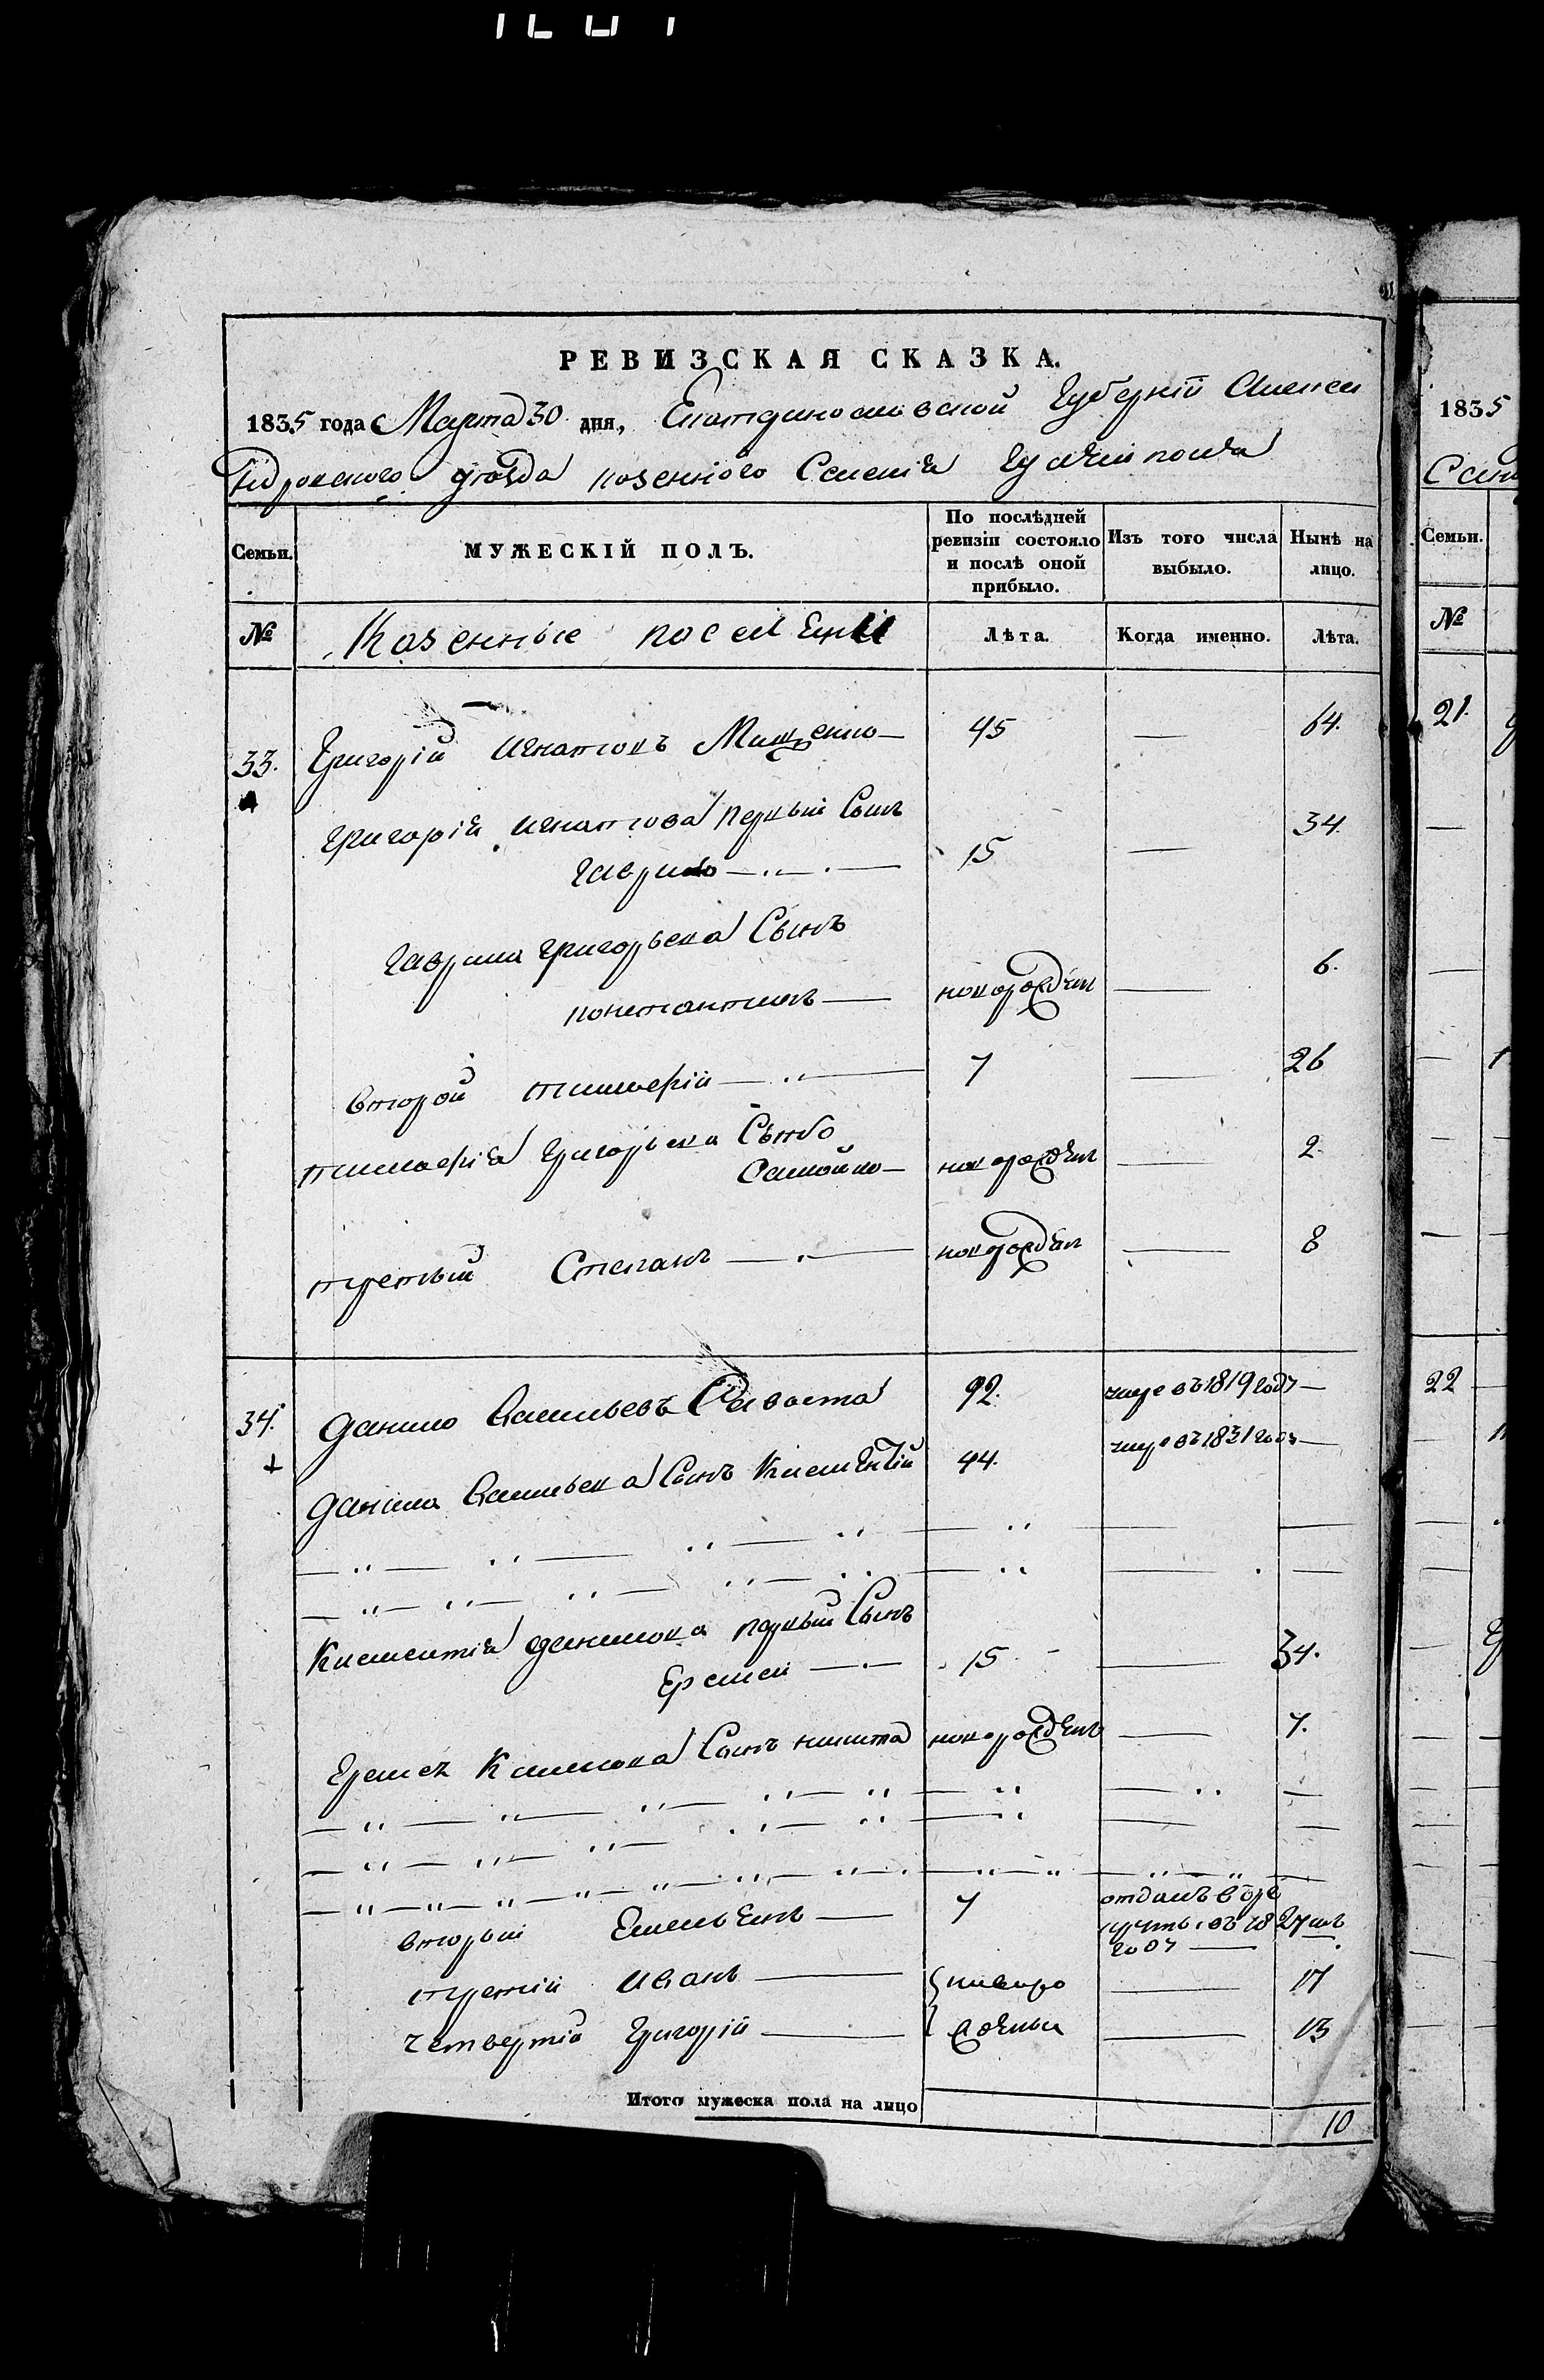 РЕВИЗСКАЯ СКАЗКА.
1835 года Марта 30 дня, Екатериновславской Губернїи Алексан
дровского уѣзда казенного Селенїя
Семьи.
МУЖЕСКІЙ ПОЛЪ.
По послѣдней ревизіи состояло и послѣ оной прибыло.
Изъ того числа выбыло.
Нынѣ на лицо.
№
Казенные поселяни
Лѣта.
Когда именно.
Лѣта.
33. Григорїй Игнатовъ Мищенко — 45 — 64.
Григорїя Игнатова первый Сынъ
Гаврило — 15 — 34.
Гаврила Григорьева Сынъ
константинъ — новорожден — 6.
второй тимофей — 7 — 26
тимофея Григорьева Сынъ
Самойло — новорожден — 2.
третьий Степанъ — новорожден — 8
34. Данило Васильевъ 92. умре въ 1819 году —
Данила Васильева Сынъ Климентїй 44. умре въ 1831 году —
Климентїя данилова первый Сынъ
Еремей — 15 — 34.
Еремея Климова Сынъ никита новорожденъ — 7.
вторый Емельянъ — 7 отданъ в рек
руты въ 1827мъ
году —
третий Иванъ — новоро — 17
четвертий Григорїй — жденыи — 13
Итого мужеска пола на лицо
10
1835
Семьи.
№
21.
22